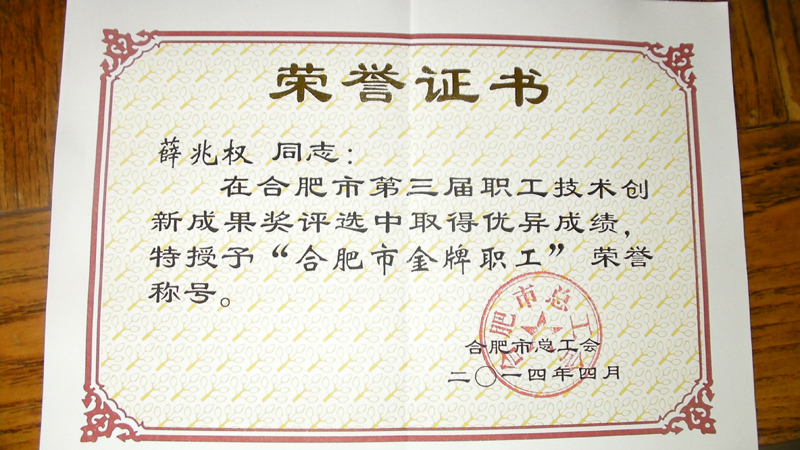 荣誉证书
薛兆权 同志：
在合肥市第三届职工技术创
新成果奖评选中取得优异成绩，
特授予“合肥市金牌职工”荣誉
称号。
合肥市总工会
合肥市总工会
二〇一四年四月